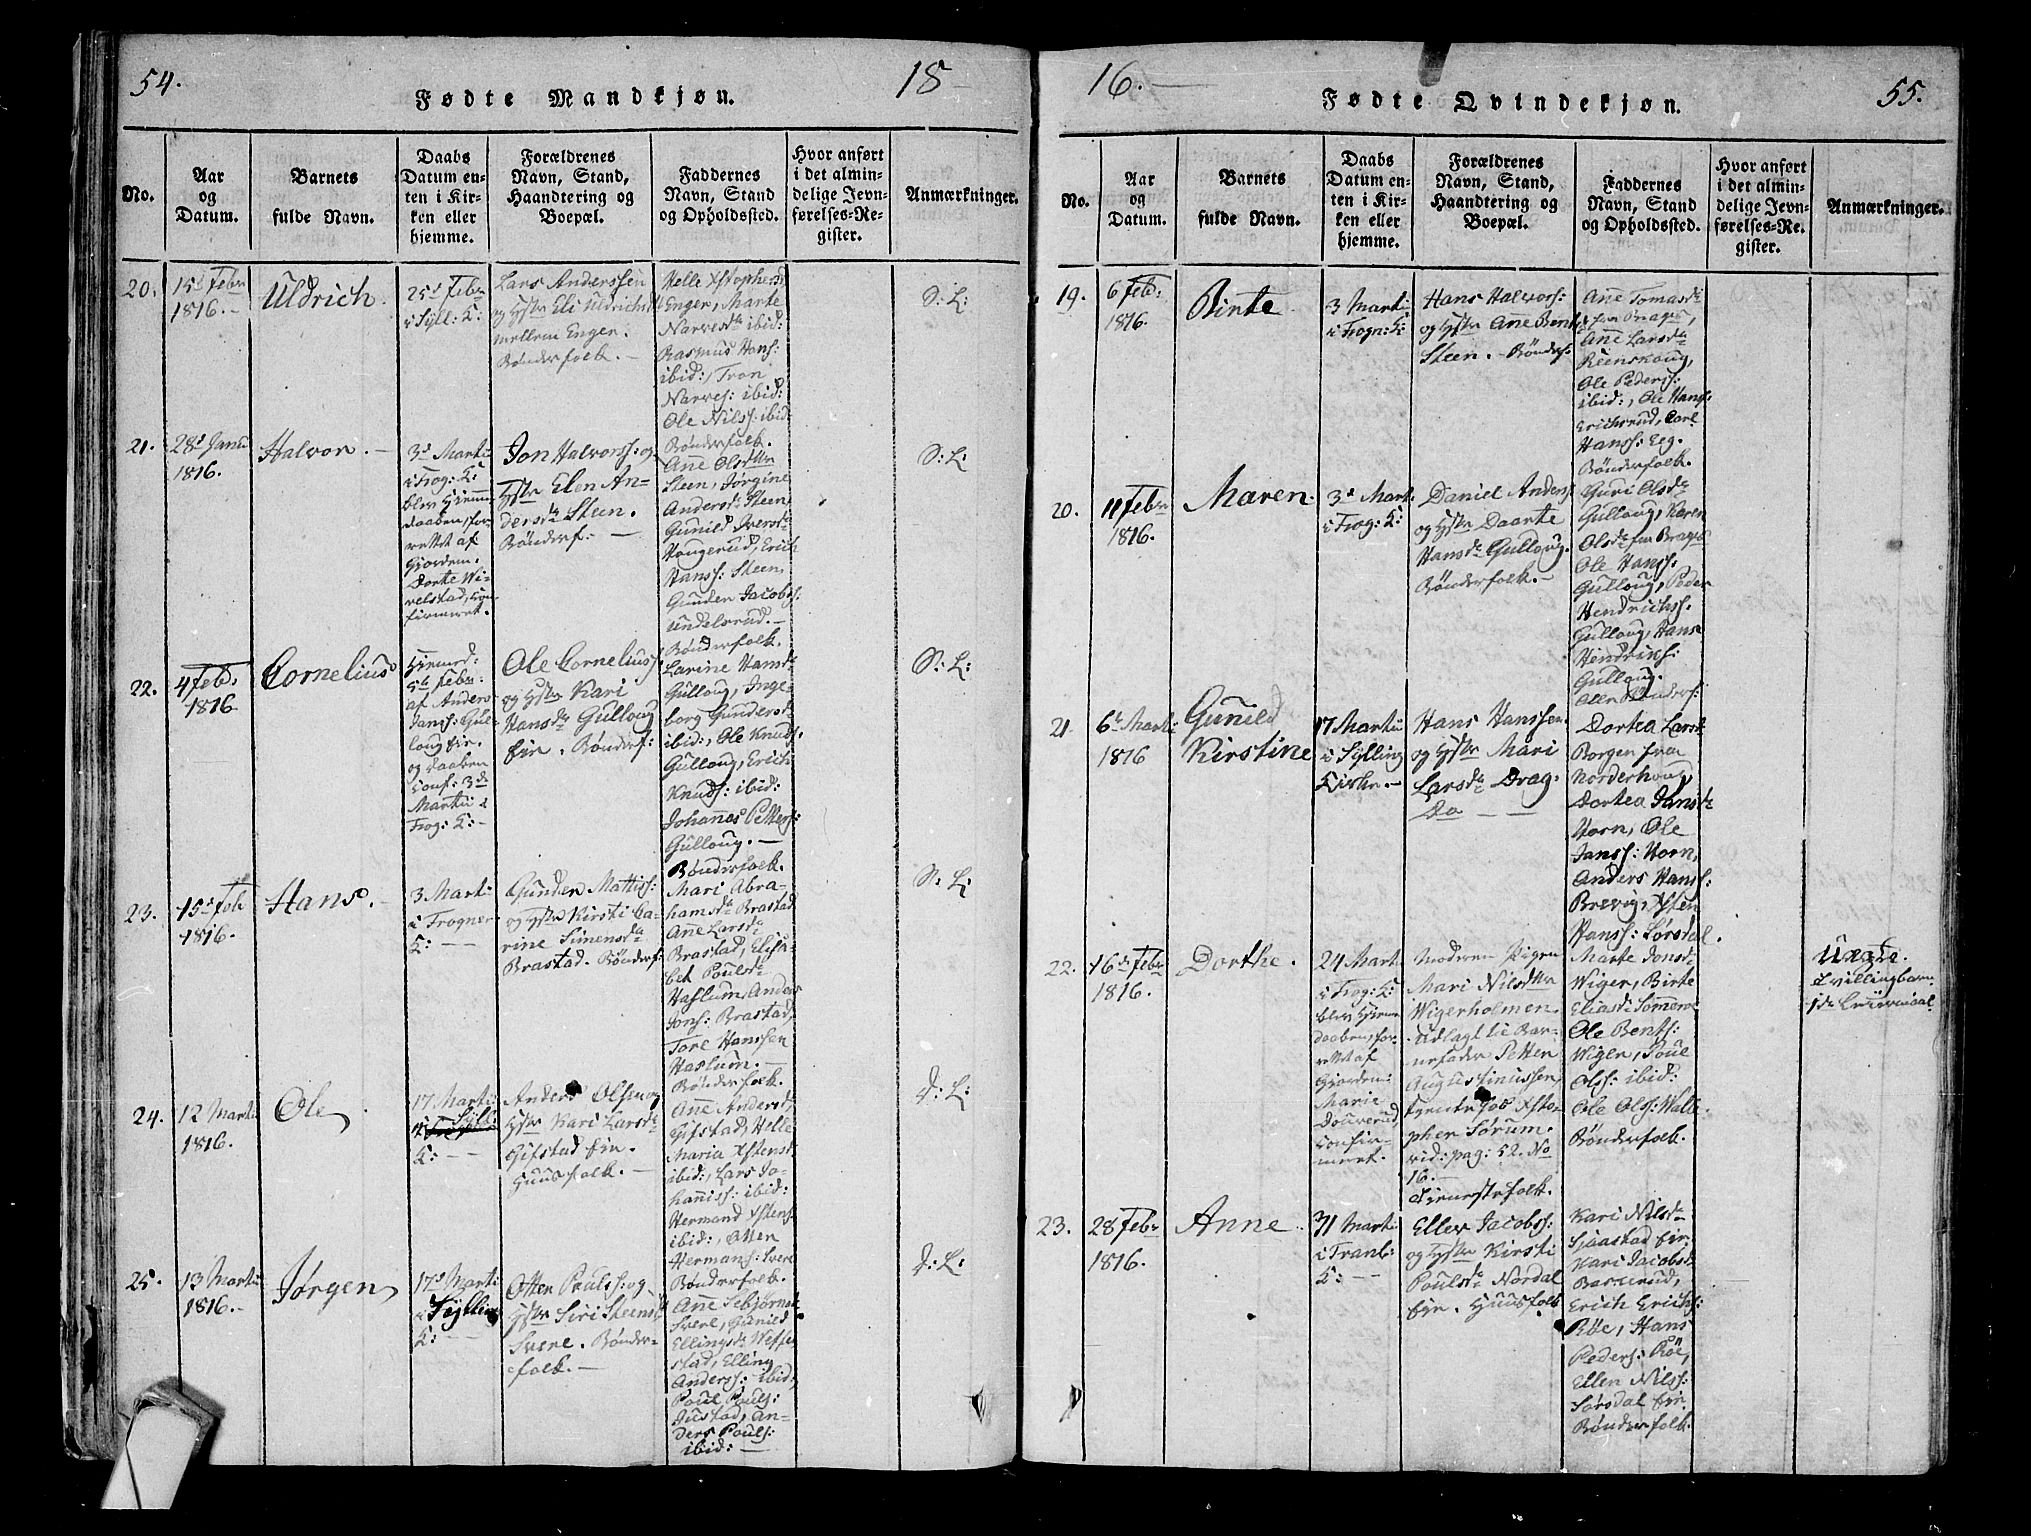 54.
Fødte Mandkjøn.
18
No.
Aar
og
Datum.
Barnets
fulde Navn.
Daabs
Datum en-
ten i Kir-
ken eller
hjemme.
Forældrenes
Navn, Stand,
Haandtering og
Boepæl.
Faddernes
Navn, Stand
og Opholdssted.
Hvor anført
i det almin-
delige Jevn-
førelses-Re-
gister.
Anmærkninger.
20.
15d Febr
1816.
Uldrich.
25d Febr
i Syll: K:
Lars Anderssen
og Hstr Eli Uldrichsd
mellem Enger.
Bønderfolk.
Helle Xstophersd
Enger, Marte
Narvesdr ibid:
Rasmus Hans:
ibid:, Tron
Narves: ibid:
Ole Nilss: ibid:
Bønderfolk.
S: L:
21.
28d Janu
1816.
Halvor.
3d Marti
i Frog: K:
blev hiemme
daaben, for-
rettet af
Giordem:
Dorte Wi-
velstad, con
firmeret.
Jon Halvorss: og
Hstr Elen An-
dersdr Steen.
Bønderf:
Anne Olsdttr
Steen, Jørgine
Andersdr Steen,
Gunild Iversdr
Haugerud, Erich
Hanss: Steen,
Gunder Jacobss:
Undelsrud.
Bønderfolk.
S: L:
22.
4 Feb:
1816
Cornelius
Hiemed:
5te Febr:
af Anders
Janss: Gul-
loug Eie.
og Daaben
Conf: 3d
Martii i
Frog: K:
Ole Cornelius:
og Hstr Kari
Hansdr Gulloug
Eie. Bønderf:
Larine Hansdr
Gulloug, Inge-
borg Gundersdr
ibid:, Ole Knuds:
Gulloug, Erich
Knuds: ibid:
Johannes Petters:
Gulloug.
Bønderfolk.
S: L:
23.
15d Feb
1816.
Hans.
3 Marti
i Frogner
K:
Gunder Mattiss:
og Hstr Kirsti Ca-
rine Simensdr
Brastad. Bønderf:
Mari Abra-
hamsdr Brastad
Anne Larsdr
Brastad, Elisa-
bet Poulsdr
Haslum, Anders
Jons: Brastad,
Tore Hanssen
Haslum.
Bønderfolk.
S: L:
24.
12 Martii
1816.
Ole
17 Marti
i Syll:
K:
Anders Olsen og
Hstr Kari Larsdr
Gifstad Eie.
Huusfolk.
Anne Andersd,
Gifstad, Helle
Maria Xstensd
ibid:, Lars Jo-
haniss: ibid:
Hermand Xstens
ibid:, Otter
Hermans: Svere
Bønderfolk.
d: L:
25.
13 Martii
1816.
Jørgen
17d Marti
i Sylling
K:
Otter Poulss: og
Hstr Siri Steensd
Svere. Bønder-
folk.
Anne Sebjørnsd
Svere, Gunild
Ellingsdr Wefse
stad, Elling
Anderss: ibid,
Poul Pouls:
Justad, An-
ders Pouls:
ibid:
d: L:
16.
Fødte Qvindekjøn.
55.
No.
Aar
og
Datum.
Barnets
fulde Navn.
Daabs
Datum en-
ten i Kir-
ken eller
hjemme.
Forældrenes
Navn, Stand,
Haandtering og
Boepæl.
Faddernes
Navn, Stand
og Opholdssted.
Hvor anført
i det almin-
delige Jevn-
førelses-Re-
gister.
Anmærkninger.
19.
6 Feb:
1816.
Birte
3 Marti
i Frogn: K:
Hans Halvors:
og Hstr Anne Bentsd
Steen. Bønderf:
Anne Tomasdr
fra Brages,
Anne Larsdr
Reenskoug,
Ole Peders:
ibid:, Ole Hans:
Erichsrud, Carl
Hanss: Eeg.
Bønderfolk.
20.
11 Febr
1816.
Maren.
3d Mart
i Frog: K:
Daniel Anders
og Hstr Daarte
Hansdr Gulloug.
Bønderfolk.
Guri Olsdr
Gulloug, Karen
Olsdr fra Brages
Ole Hanss:
Gulloug, Peder
Hendrichss:
Gulloug, Hans
Hendriks:
Gulloug.
Alle Bønderf:
21
6te Marti
1816
Gunild
Kirstine
17 Martii
i Sylling
Kirke.
Hans Hanssen
og Hstr Mari
Larsdr Drag.
Do
Dortea Larsd
Borgen fra
Norderhoug,
Dortea Jansdr
Horn, Ole
Janss: Horn,
Anders Hans:
Brevog, Xsten
Hanss: Sørsdal.
22.
16de Febr
1816.
Dorthe.
24 Mart
i Frog: K:
blev hieme
daaben, for-
rettet af
Giordem:
Marie
Douverud,
Confir-
meret.
Moderen Pigen
Mari Nilsdttr
Wigerholmen.
Udlagt til Bar-
nefader Petter
Augustinussen,
tjente hos Xsto-
pher Sørum.
vid: pag: 52. No
16.
Tienestefolk.
Marte Jonsdr
Wiger, Birte
Eliasdr Sømeroe
Ole Bents:
Wiger, Poul
Olss: ibid:
Ole Ols: Walle
Bønderfolk.
Uægte.
Tvillingbarn.
23.
28 Febr
1816.
Anne
31 Mart:
i Tranb:
K:
Ellev Jacobss:
og Hstr Kirsti
Poulsdr Nordal
Eie. Huusfolk
Kari Nilsdr
Sjaastad Eie,
Kari Jacobsdr
Barrerud,
Erich Erichs:
Røe, Hans
Peders: Røe,
Ellen Nilss:
Sørsdal Eie.
Bønderfolk.